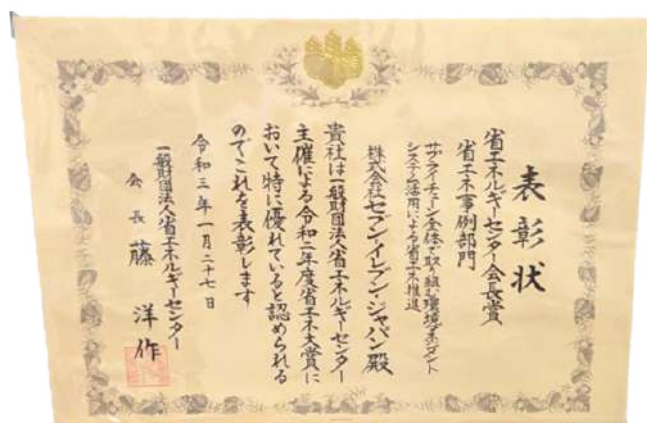 表彰状
省エネルギーセンター会長賞
省エネ事例部門
サプライチェーン全体で取り組む環境マネジメント
システム活用による省エネ推進
株式会社セブン-イレブン・ジャパン殿
貴社は一般財団法人省エネルギーセンター
主催による令和二年度省エネ大賞に
おいて特に優れていると認められる
のでこれを表彰します
令和三年一月二十七日
一般財団法人省エネルギーセンター
会長 藤 洋作